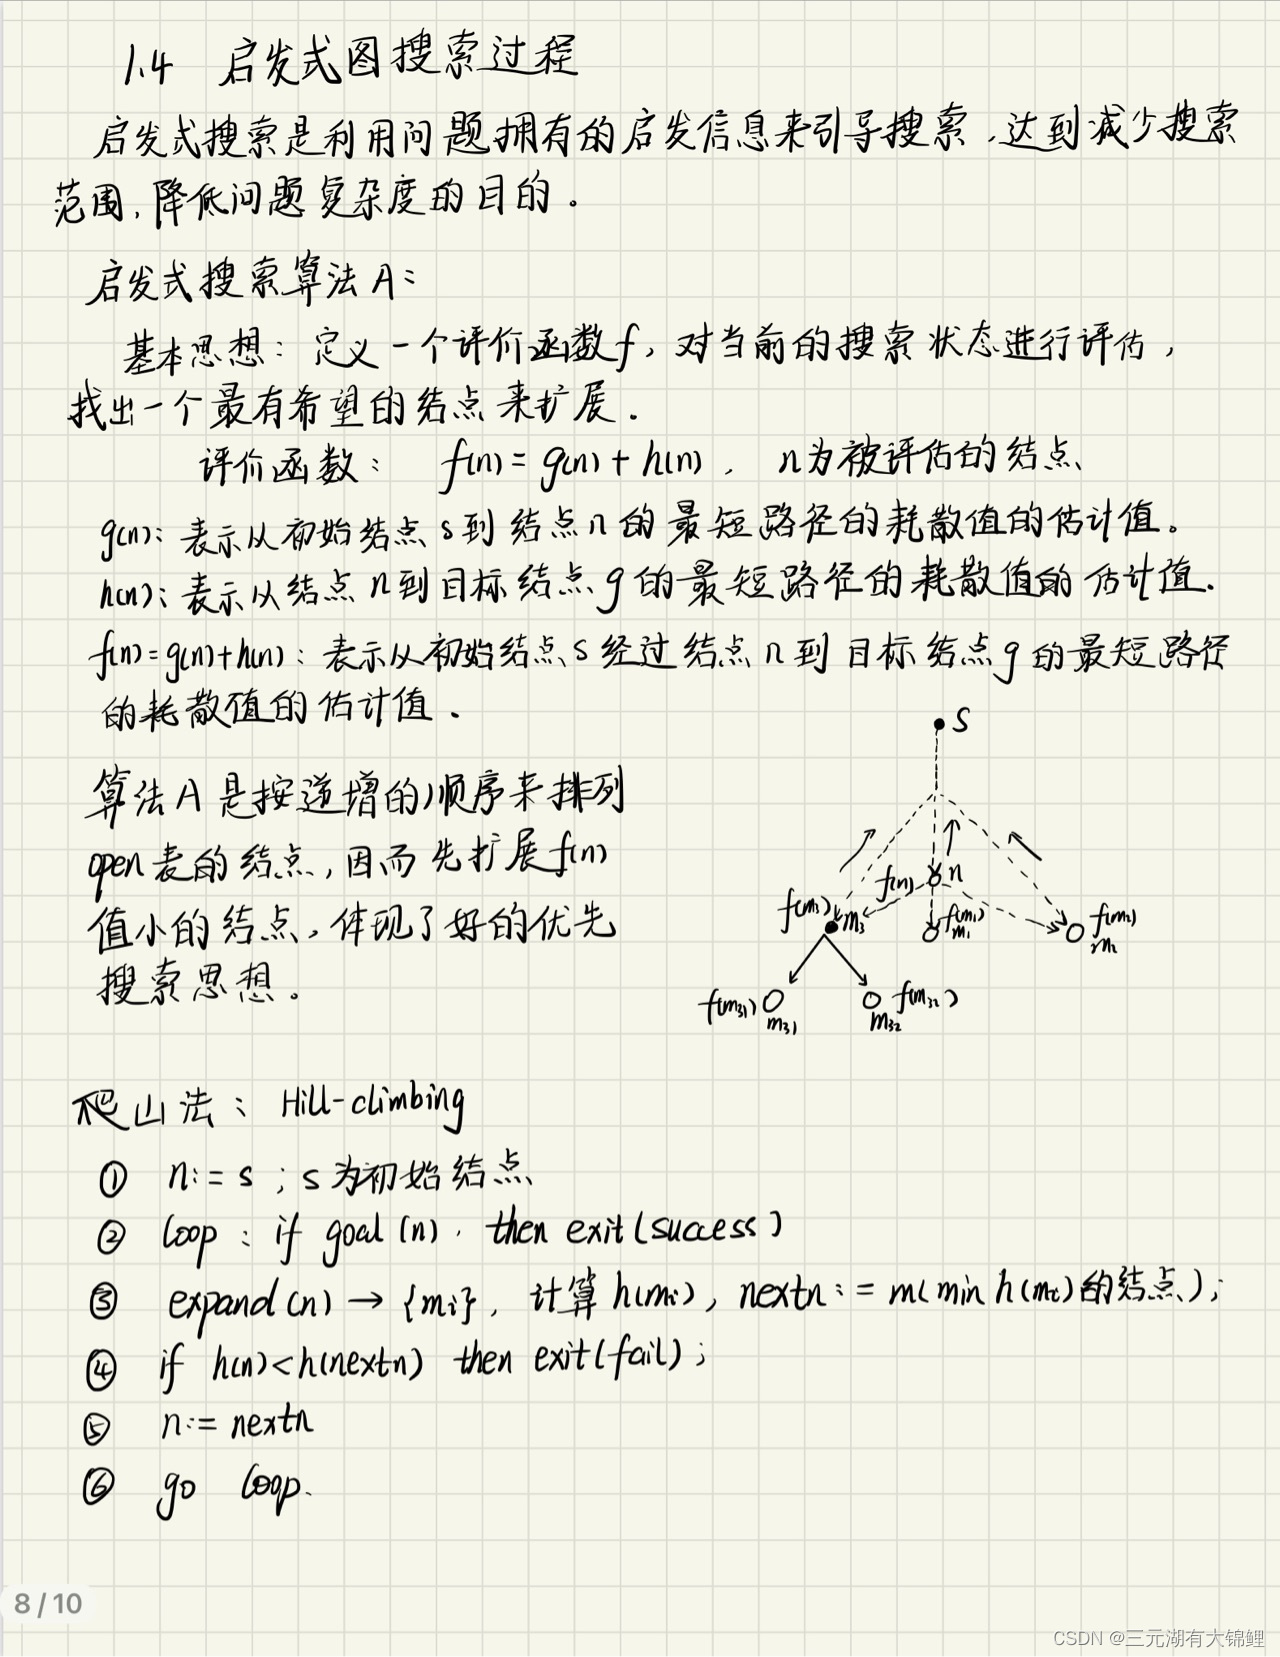 1.4 启发式图搜索过程
启发式搜索是利用问题拥有的启发信息来引导搜索,达到减少搜索
范围,降低问题复杂度的目的。
启发式搜索算法A:
基本思想:定义一个评价函数f,对当前的搜索状态进行评估,
找出一个最有希望的结点来扩展.
评价函数: f(n)=g(n)+h(n), n为被评估的结点
g(n):表示从初始结点s到结点n的最短路径的耗散值的估计值。
h(n):表示从结点n到目标结点g的最短路径的耗散值的估计值.
f(n)=g(n)+h(n):表示从初始结点s经过结点n到目标结点g的最短路径
的耗散值的估计值.
S
算法A是按递增的顺序来排列
open表的结点,因而先扩展f(n)
值小的结点,体现了好的优先
搜索思想。
f(n) n
f(m3) m3 f(m1) m1 f(m2) m2
f(m31) m31 m32 f(m32)
爬山法: Hill-climbing
① n:=s ; s为初始结点
② loop : if goal(n), then exit(success)
③ expand(n) → {mi}, 计算h(mi), nextn:=m(min h(mi)的结点);
④ if h(n)<h(nextn) then exit(fail);
⑤ n:=nextn
⑥ go loop.
8 / 10
CSDN @三元湖有大锦鲤